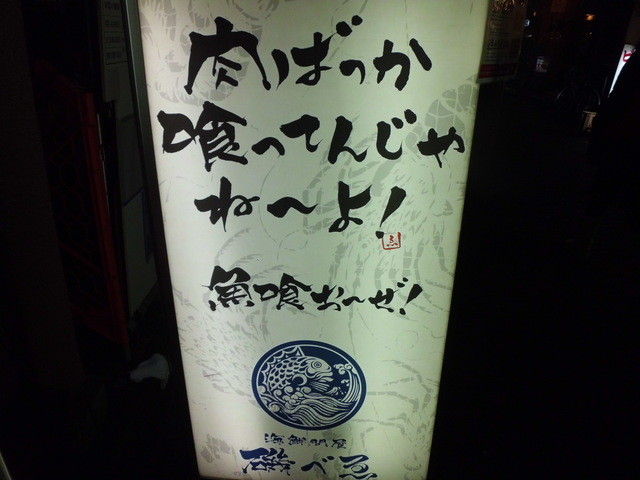 肉ばっか
喰ってんじゃ
ね〜よ!
魚喰お〜ぜ!
海鮮問屋
磯べゑ